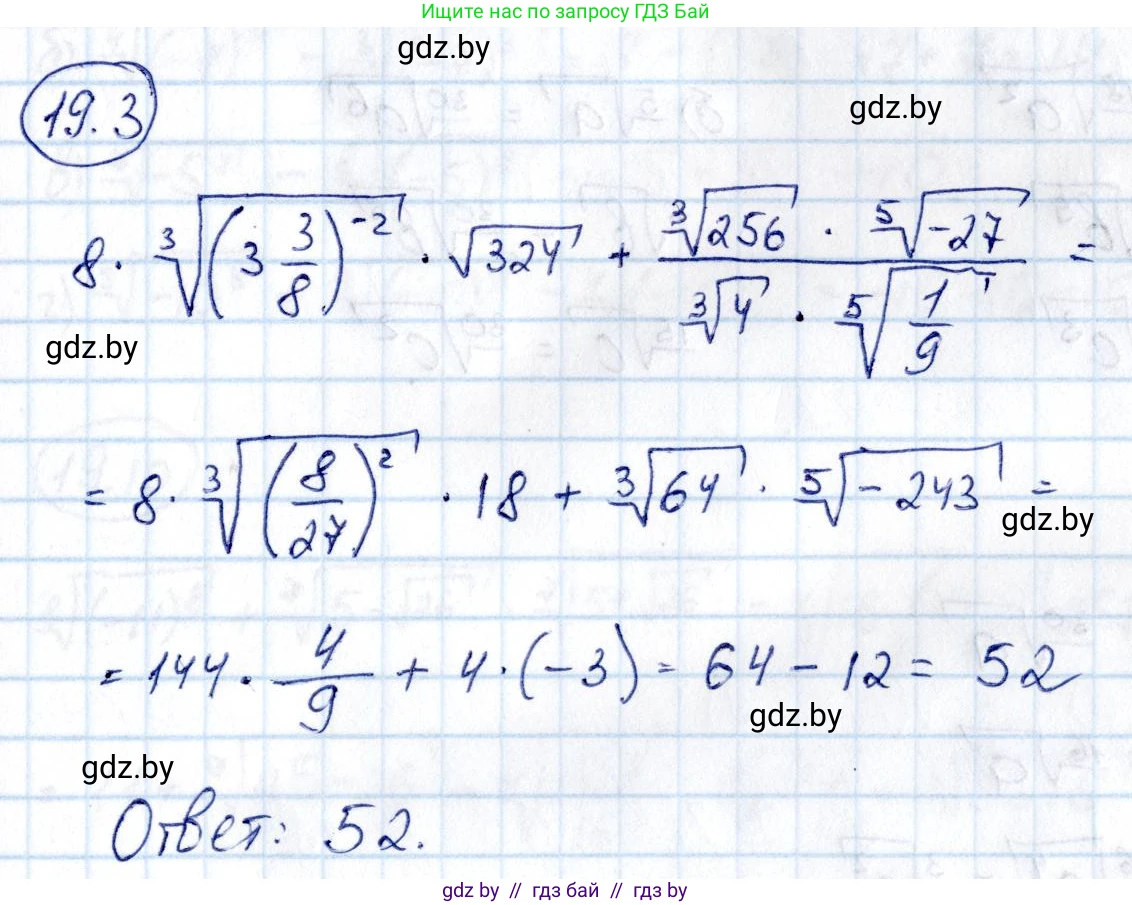 Ищите нас по запросу ГДЗ Бай
gdz.by
19.3
gdz.by
8 · ∛((3 3/8)^-2) · √324 + (∛256 · ⁵√-27) / (∛4 · ⁵√(1/9)) =
gdz.by
= 8 · ∛((8/27)^2) · 18 + ∛64 · ⁵√-243 =
gdz.by
= 144 · 4/9 + 4 · (-3) = 64 - 12 = 52
gdz.by
gdz.by
Ответ: 52.
gdz by // гдз бай // gdz by